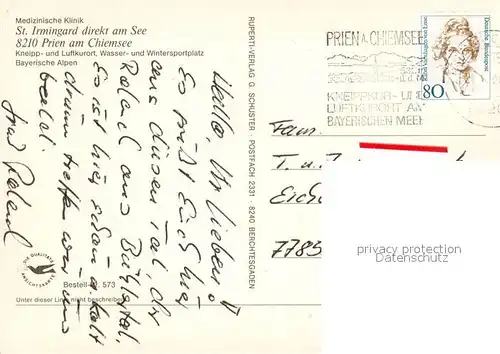 Medizinische Klinik
St. Irmingard direkt am See
8210 Prien am Chiemsee
Kneipp- und Luftkurort, Wasser- und Wintersportplatz
Bayerische Alpen
Hallo, Ihr Lieben!
Es grüßt Euch hier
aus diesem Tal, der
Roland aus Bühlertal.
Es ist hier schön u. kalt
drum treffen wir uns
bald.
Roland
DIE QUALITÄTS
ANSICHTSKARTE
Bestell-Nr. 573
Unter dieser Linie nicht beschreiben!
RUPERTI-VERLAG G. SCHUSTER · POSTFACH 2331 · 8240 BERCHTESGADEN
PRIEN A. CHIEMSEE
KNEIPPKUR- U
LUFTKURORT AM
BAYERISCHEN MEER
Deutsche Bundespost
80
Fam.
T. u.
7785
privacy protection
AnsichtskartenCenter